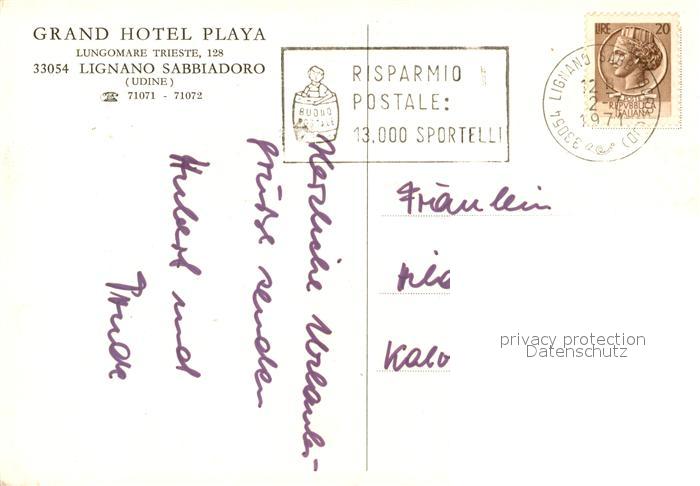 GRAND HOTEL PLAYA
LUNGOMARE TRIESTE, 128
33054 LIGNANO SABBIADORO
(UDINE)
☎ 71071 - 71072
RISPARMIO
POSTALE:
13.000 SPORTELLI
BUONO
POSTALE
LIRE 20
REPVBBLICA
ITALIANA
33054 LIGNANO (UD)
1971
Herzliche Urlaubs-
grüße senden
Hubert und
Trude
Fräulein
privacy protection
Datenschutz